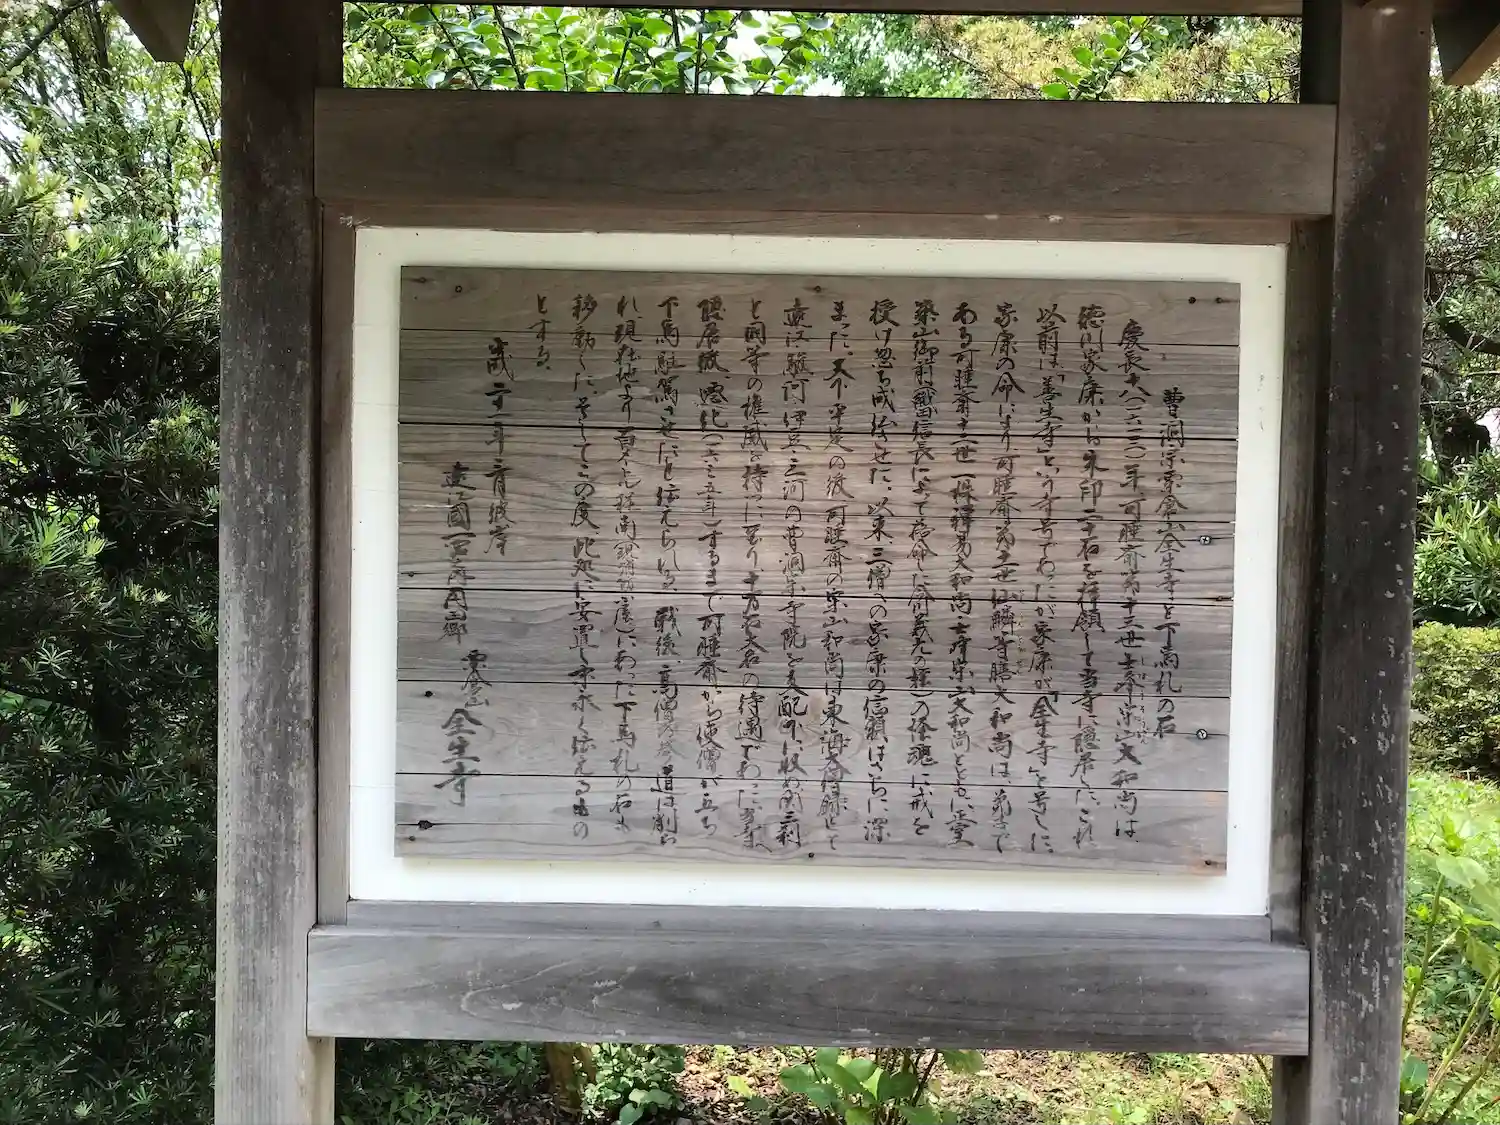 曹洞宗雲倉山全生寺と下馬札の石
慶長十八(一六一三)年可睡斎第十三世士峯宋山大和尚は
徳川家康から朱印二十石を拝領して当寺に隠居した。これ
以前は「善生寺」という寺号であったが家康が「全生寺」と号した。
家康の命により可睡斎第十一世仙麟等膳大和尚は弟子で
ある可睡斎十二世一株禅易大和尚・士峯宋山大和尚とともに正室
築山御前 信長によって 命した の怪魂に戒を
授け忽ち成仏させた。以来三僧への家康の信頼はさらに深
まった。天下平定の後可睡斎の宋山和尚は東海大僧録として
遠江駿河伊豆三河の曹洞宗寺院を支配下に収め関三刹
と同等の権威を持つに至り、十万石大名の待遇であった。当寺へ
隠居後、遷化(一六三五年)するまで可睡斎から使僧が立ち
下馬駐駕させたと伝えられる。戦後、高僧 道は削ら
れ現在地より百メートル程南 にあった下馬札の石も
移動した。そしてこの度、此処に安置し末永く伝えるもの
とする。
平成二十一年二月彼岸
遠江国一宮 円田郷 雲倉山 全生寺